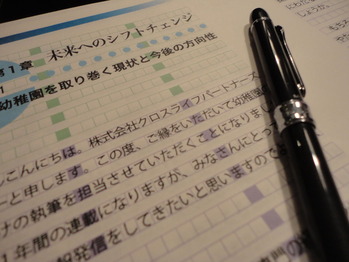 第1章 未来へのシフトチェンジ
幼稚園を取り巻く現状と今後の方向性
こんにちは。株式会社クロスライフパートナーズ
ーと申します。この度、ご縁をいただいて幼稚園
けの執筆を担当させていただくことになりま
1年間の連載になりますが、みなさんにとっ
報発信をしてきたいと思いますので